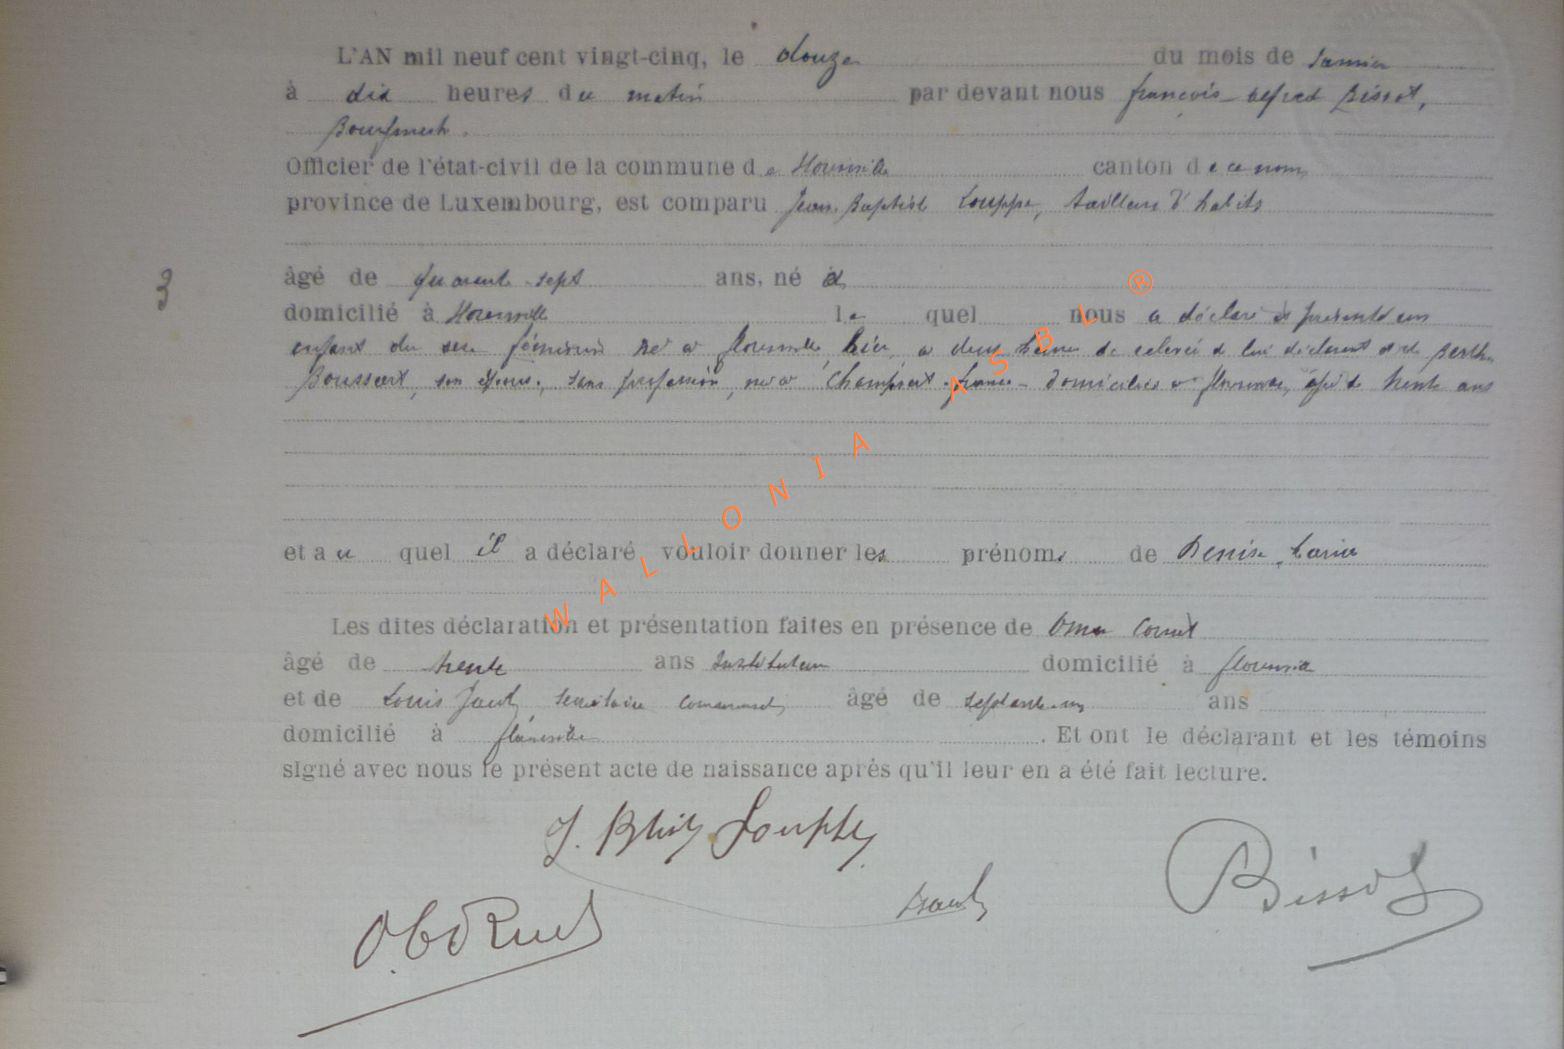 L'AN mil neuf cent vingt-cinq, le douze du mois de Janvier
à dix heures du matin par devant nous françois alfred Bissot,
Bourgmestre.
Officier de l'état-civil de la commune de canton de ce nom,
province de Luxembourg, est comparu Jean Baptiste Louppe, tailleur d'habits
3
âgé de quarante sept ans, né à
domicilié à le quel nous a déclaré et présenté un
enfant du sexe féminin né à hier, à deux heures de de lui déclarant et de Berthe
son épouse, sans profession, née à france domiciliée à âgée de trente ans
et au quel il a déclaré vouloir donner les prénoms de Denise, Maria
Les dites déclaration et présentation faites en présence de Omer Cornet
âgé de trente ans Instituteur domicilié à
et de Louis secrétaire communal, âgé de septante-un ans
domicilié à . Et ont le déclarant et les témoins
signé avec nous le présent acte de naissance après qu'il leur en a été fait lecture.
J. Louppe
Bissot
O Cornet
WALLONIA ASBL ®